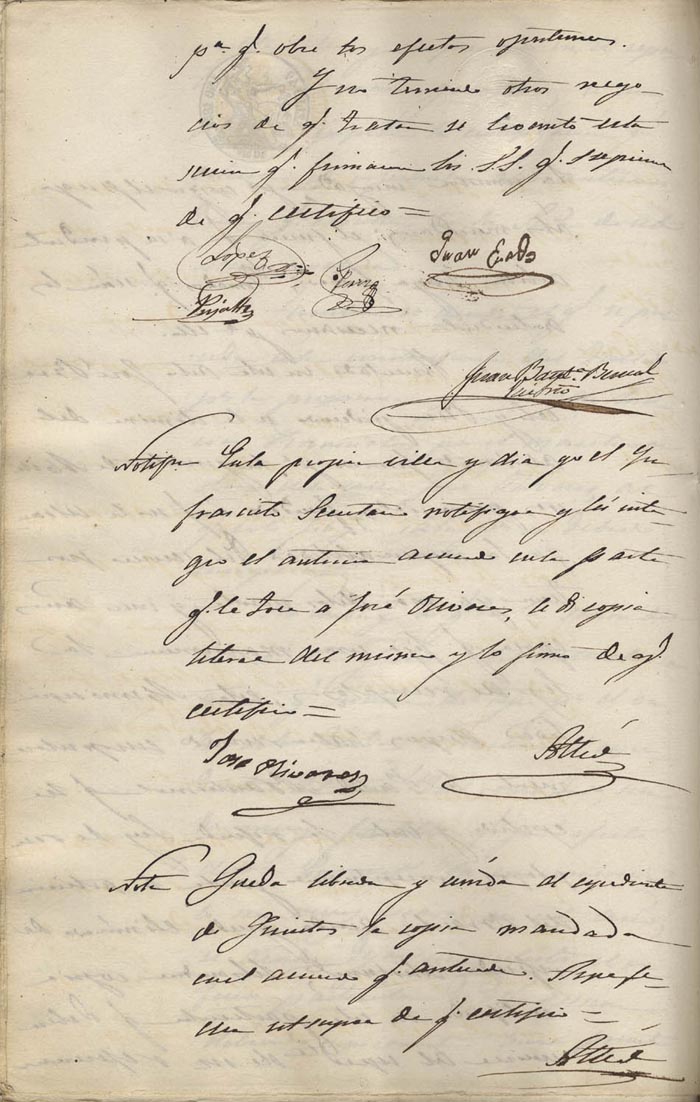 pª q. obre los efectos oportunos.
Y no teniendo otros nego-
cios de q. tratar se levantó esta
sesion q. firmaron los S.S. q. supieron
de q. certifico =
Lopez
Juan
Juan Bautª
Notifn. En la propia villa y dia yo el in-
frascrito Secretario notifique y leí inte-
gro el anterior acuerdo en la parte
q. le toca a José Olivares, le di copia
literal del mismo y lo firma de q.
certifico =
Jose Olivares
Nota Queda librada y unida al expediente
de Quintas la copia mandada
en el acuerdo q. antecede.
cha ut supra de q. certifico =